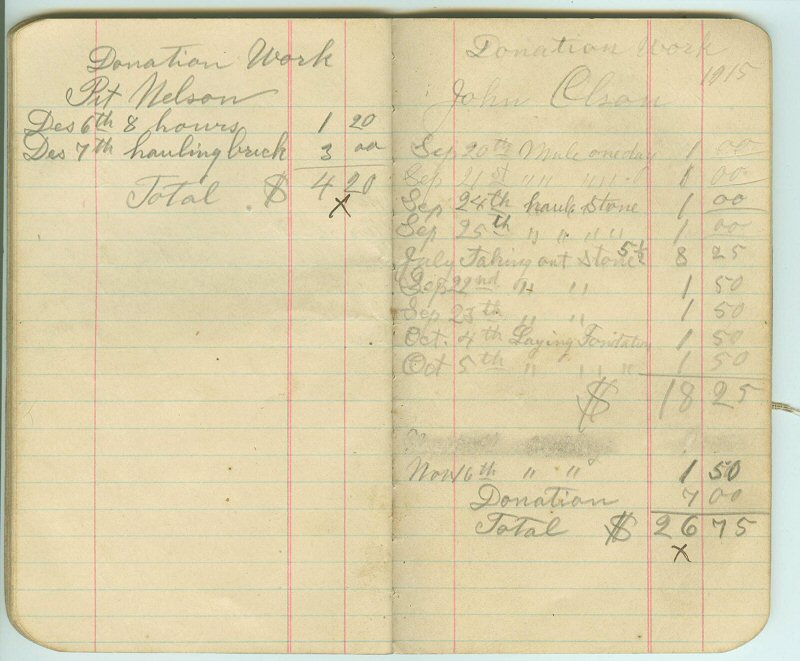 Donation Work
Pit Nelson
Des 6th 8 hours 1 20
Des 7th hauling brick 3 00
Total $ 4 20
x
Donation Work
1915
John Olson
Sep 20th Mule one day 1 00
Sep 21st " " " " " 1 00
Sep 24th haul Stone 1 00
Sep 25th " " " " 1 00
July Taking out Stone 5½ 8 25
Sep 22nd " " 1 50
Sep 23th " " 1 50
Oct. 4th Laying Fondation 1 50
Oct 5th " " " " 1 50
$ 18 25
Nov 16th " " 1 50
Donation 7 00
Total $ 26 75
x